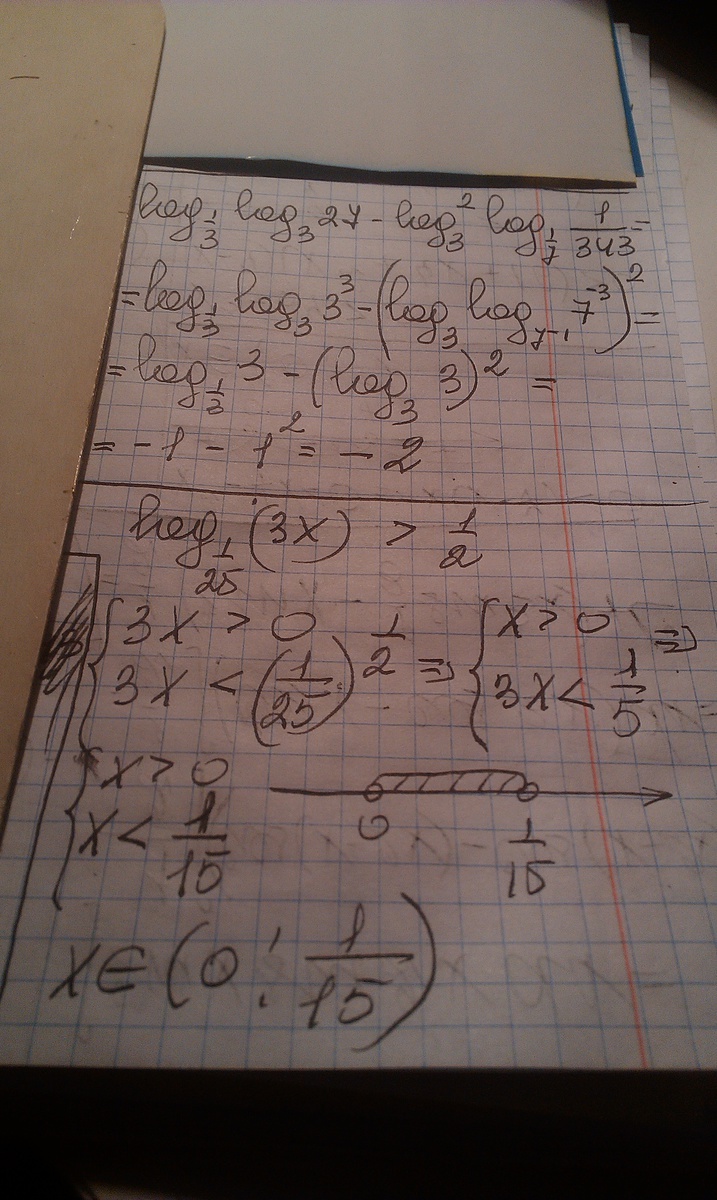 log_{1/3} log_3 27 - log_3^2 log_{1/7} 1/343 =
= log_{1/3} log_3 3^3 - (log_3 log_{7^{-1}} 7^{-3})^2 =
= log_{1/3} 3 - (log_3 3)^2 =
= -1 - 1^2 = -2
log_{1/25} (3x) > 1/2
{ 3x > 0 ; 3x < (1/25)^{1/2} => { x > 0 ; 3x < 1/5 =>
{ x > 0 ; x < 1/15
0 1/15
x ∈ (0 ; 1/15)